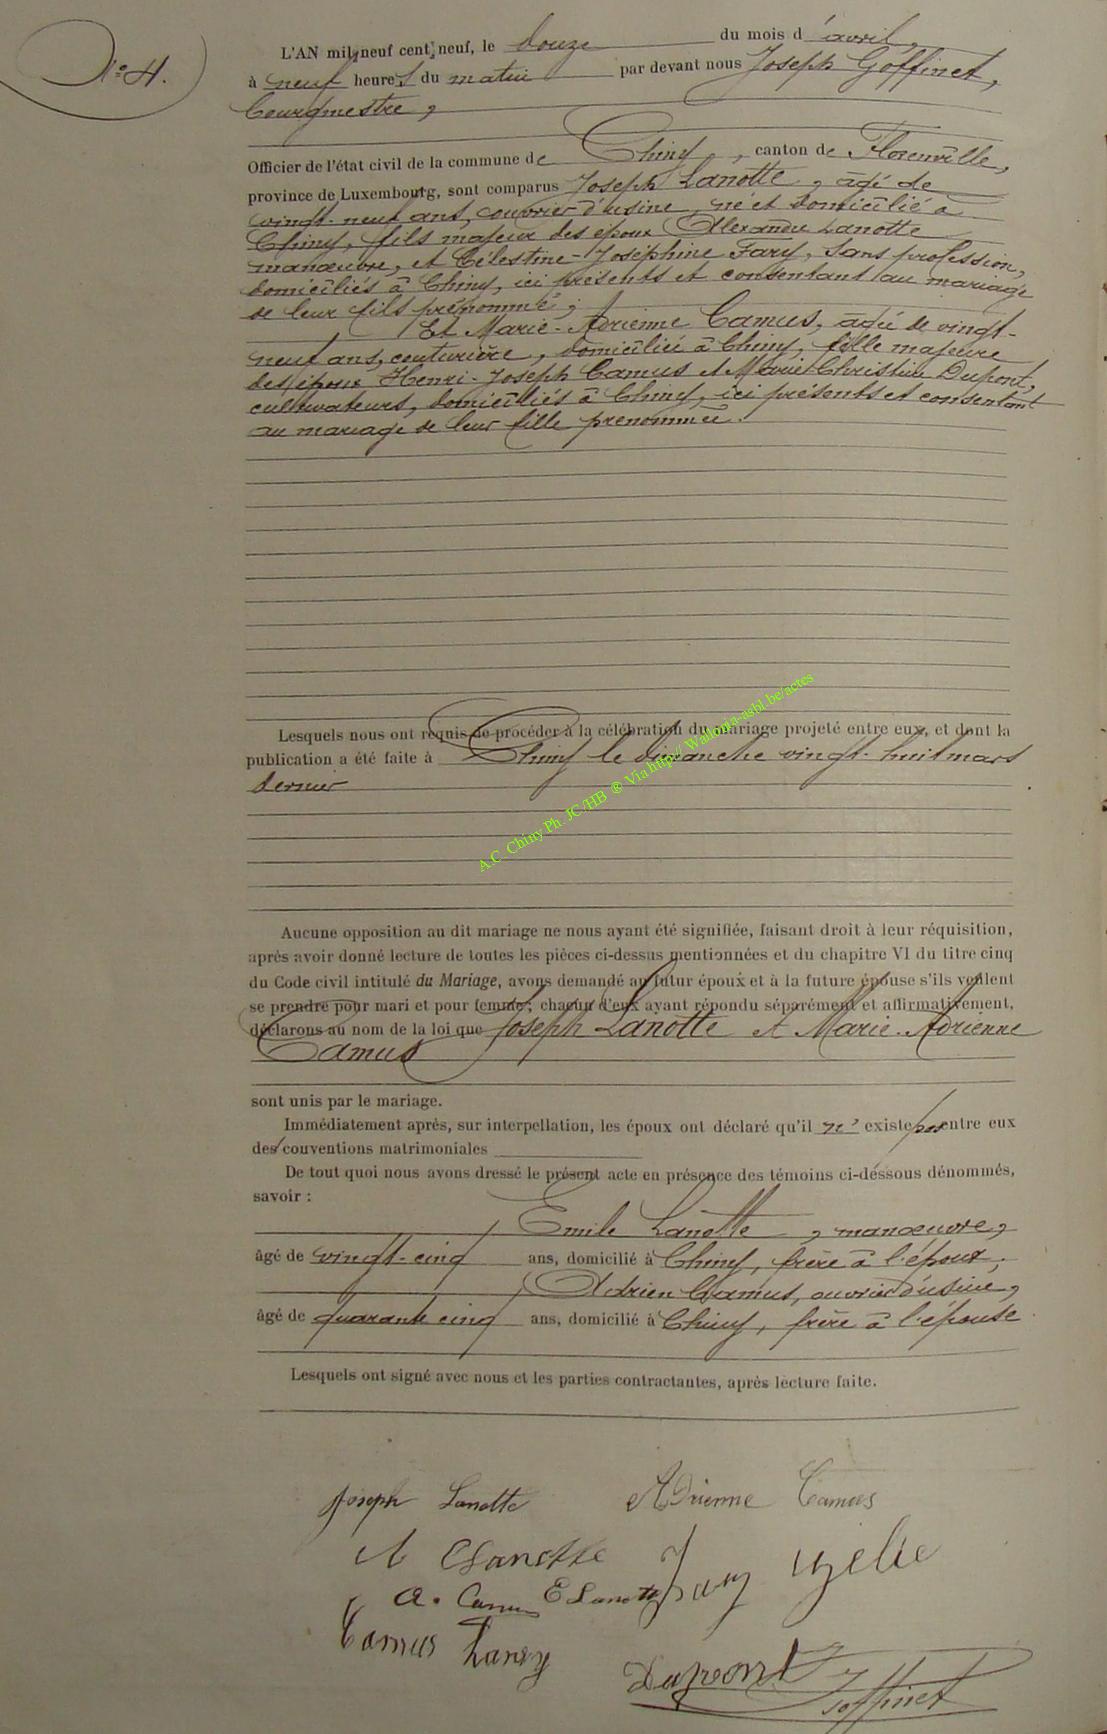 N° 4.
L'AN mil neuf cent neuf, le douze du mois d'avril,
à neuf heures du matin par devant nous Joseph Goffinet,
bourgmestre,
Officier de l'état civil de la commune de Chiny, canton de Florenville,
province de Luxembourg, sont comparus Joseph Lanotte, âgé de
vingt-neuf ans, ouvrier d'usine, né et domicilié à
Chiny, fils majeur des époux Alexandre Lanotte
manœuvre, et Célestine-Joséphine Fary, sans profession,
domiciliés à Chiny, ici présents et consentant au mariage
de leur fils prénommé;
Et Marie-Adrienne Camus, âgée de vingt-
neuf ans, couturière, domiciliée à Chiny, fille majeure
des époux Henri-Joseph Camus et Marie Christine Dupont,
cultivateurs, domiciliés à Chiny, ici présents et consentant
au mariage de leur fille prénommée.
Lesquels nous ont requis de procéder à la célébration du mariage projeté entre eux, et dont la
publication a été faite à Chiny le dimanche vingt-huit mars
dernier
A.C. Chiny Ph. JC/HB ® Via http:// Wallonia-asbl.be/actes
Aucune opposition au dit mariage ne nous ayant été signifiée, faisant droit à leur réquisition,
après avoir donné lecture de toutes les pièces ci-dessus mentionnées et du chapitre VI du titre cinq
du Code civil intitulé du Mariage, avons demandé au futur époux et à la future épouse s'ils veulent
se prendre pour mari et pour femme; chacun d'eux ayant répondu séparément et affirmativement,
déclarons au nom de la loi que Joseph Lanotte et Marie-Adrienne
Camus
sont unis par le mariage.
Immédiatement après, sur interpellation, les époux ont déclaré qu'il n' existe pas entre eux
des conventions matrimoniales
De tout quoi nous avons dressé le présent acte en présence des témoins ci-dessous dénommés,
savoir :
Emile Lanotte, manœuvre,
âgé de vingt-cinq ans, domicilié à Chiny, frère à l'époux,
Adrien Camus, ouvrier d'usine,
âgé de quarante cinq ans, domicilié à Chiny, frère à l'épouse
Lesquels ont signé avec nous et les parties contractantes, après lecture faite.
Joseph Lanotte Adrienne Camus
Lanotte
A. Camus E Lanotte
Camus Dupont Goffinet